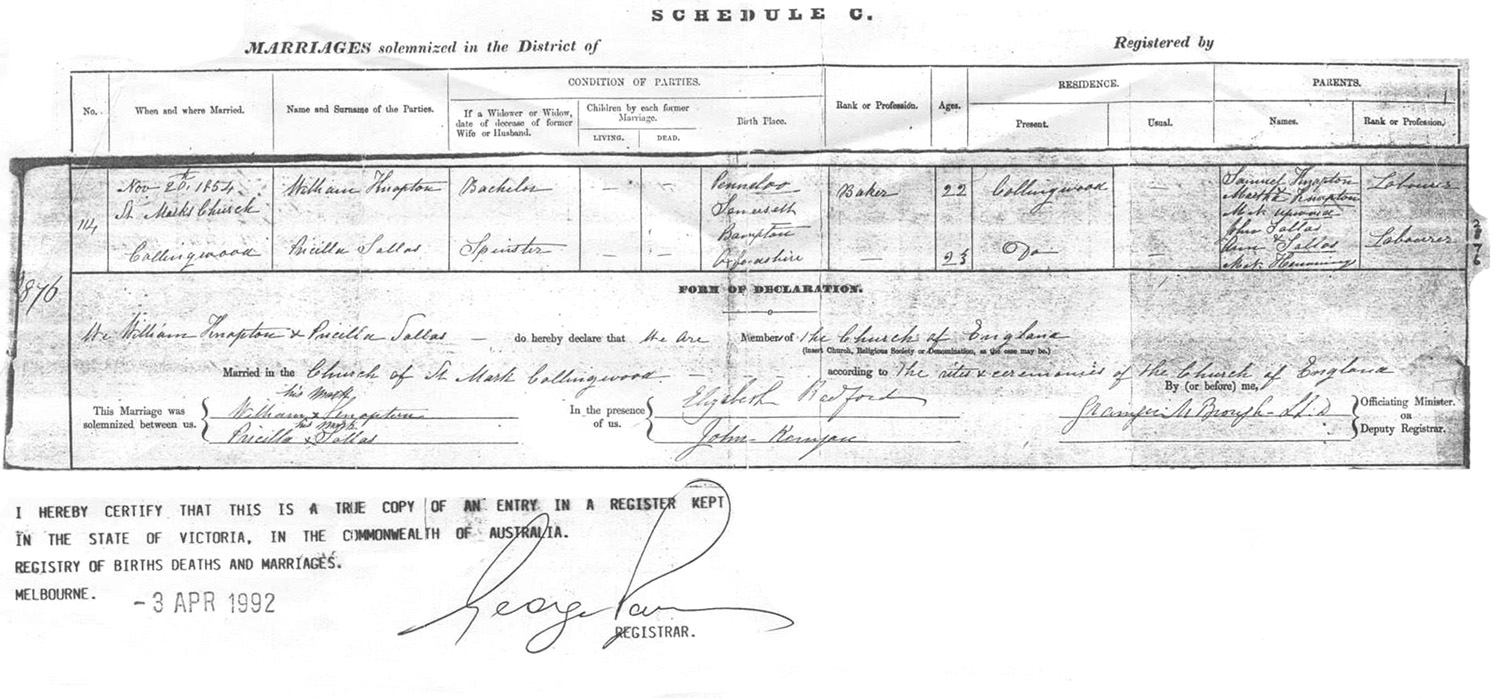 SCHEDULE C.
MARRIAGES solemnized in the District of
Registered by
No.
When and where Married.
Name and Surname of the Parties.
CONDITION OF PARTIES.
If a Widower or Widow, date of decease of former Wife or Husband.
Children by each former Marriage.
LIVING.
DEAD.
Birth Place.
Rank or Profession.
Ages.
RESIDENCE.
Present.
Usual.
PARENTS.
Names.
Rank or Profession.
114
Nov 20th, 1854
St. Marks Church
Collingwood
William Knapton
Bachelor
— —
Somersett
Baker
22
Collingwood
—
Samuel Knapton
Martha Knapton
Labourer
Pricilla Sallas
Spinster
— —
Bampton
Oxfordshire
—
Do
—
John Sallas
&
Ann Sallas
Labourer
2876
FORM OF DECLARATION.
We William Knapton & Pricilla Sallas — do hereby declare that We are Member of the Church of England
(Insert Church, Religious Society or Denomination, as the case may be.)
Married in the Church of St Mark Collingwood — — according to the rites & ceremonies of the Church of England
By (or before) me,
This Marriage was solemnized between us.
his mark
William x Knapton
his mark
Pricilla x Sallas
In the presence of us.
Elizabeth Radford
John
Officiating Minister.
or
Deputy Registrar.
I HEREBY CERTIFY THAT THIS IS A TRUE COPY OF AN ENTRY IN A REGISTER KEPT
IN THE STATE OF VICTORIA, IN THE COMMONWEALTH OF AUSTRALIA.
REGISTRY OF BIRTHS DEATHS AND MARRIAGES.
MELBOURNE.
-3 APR 1992
George
REGISTRAR.